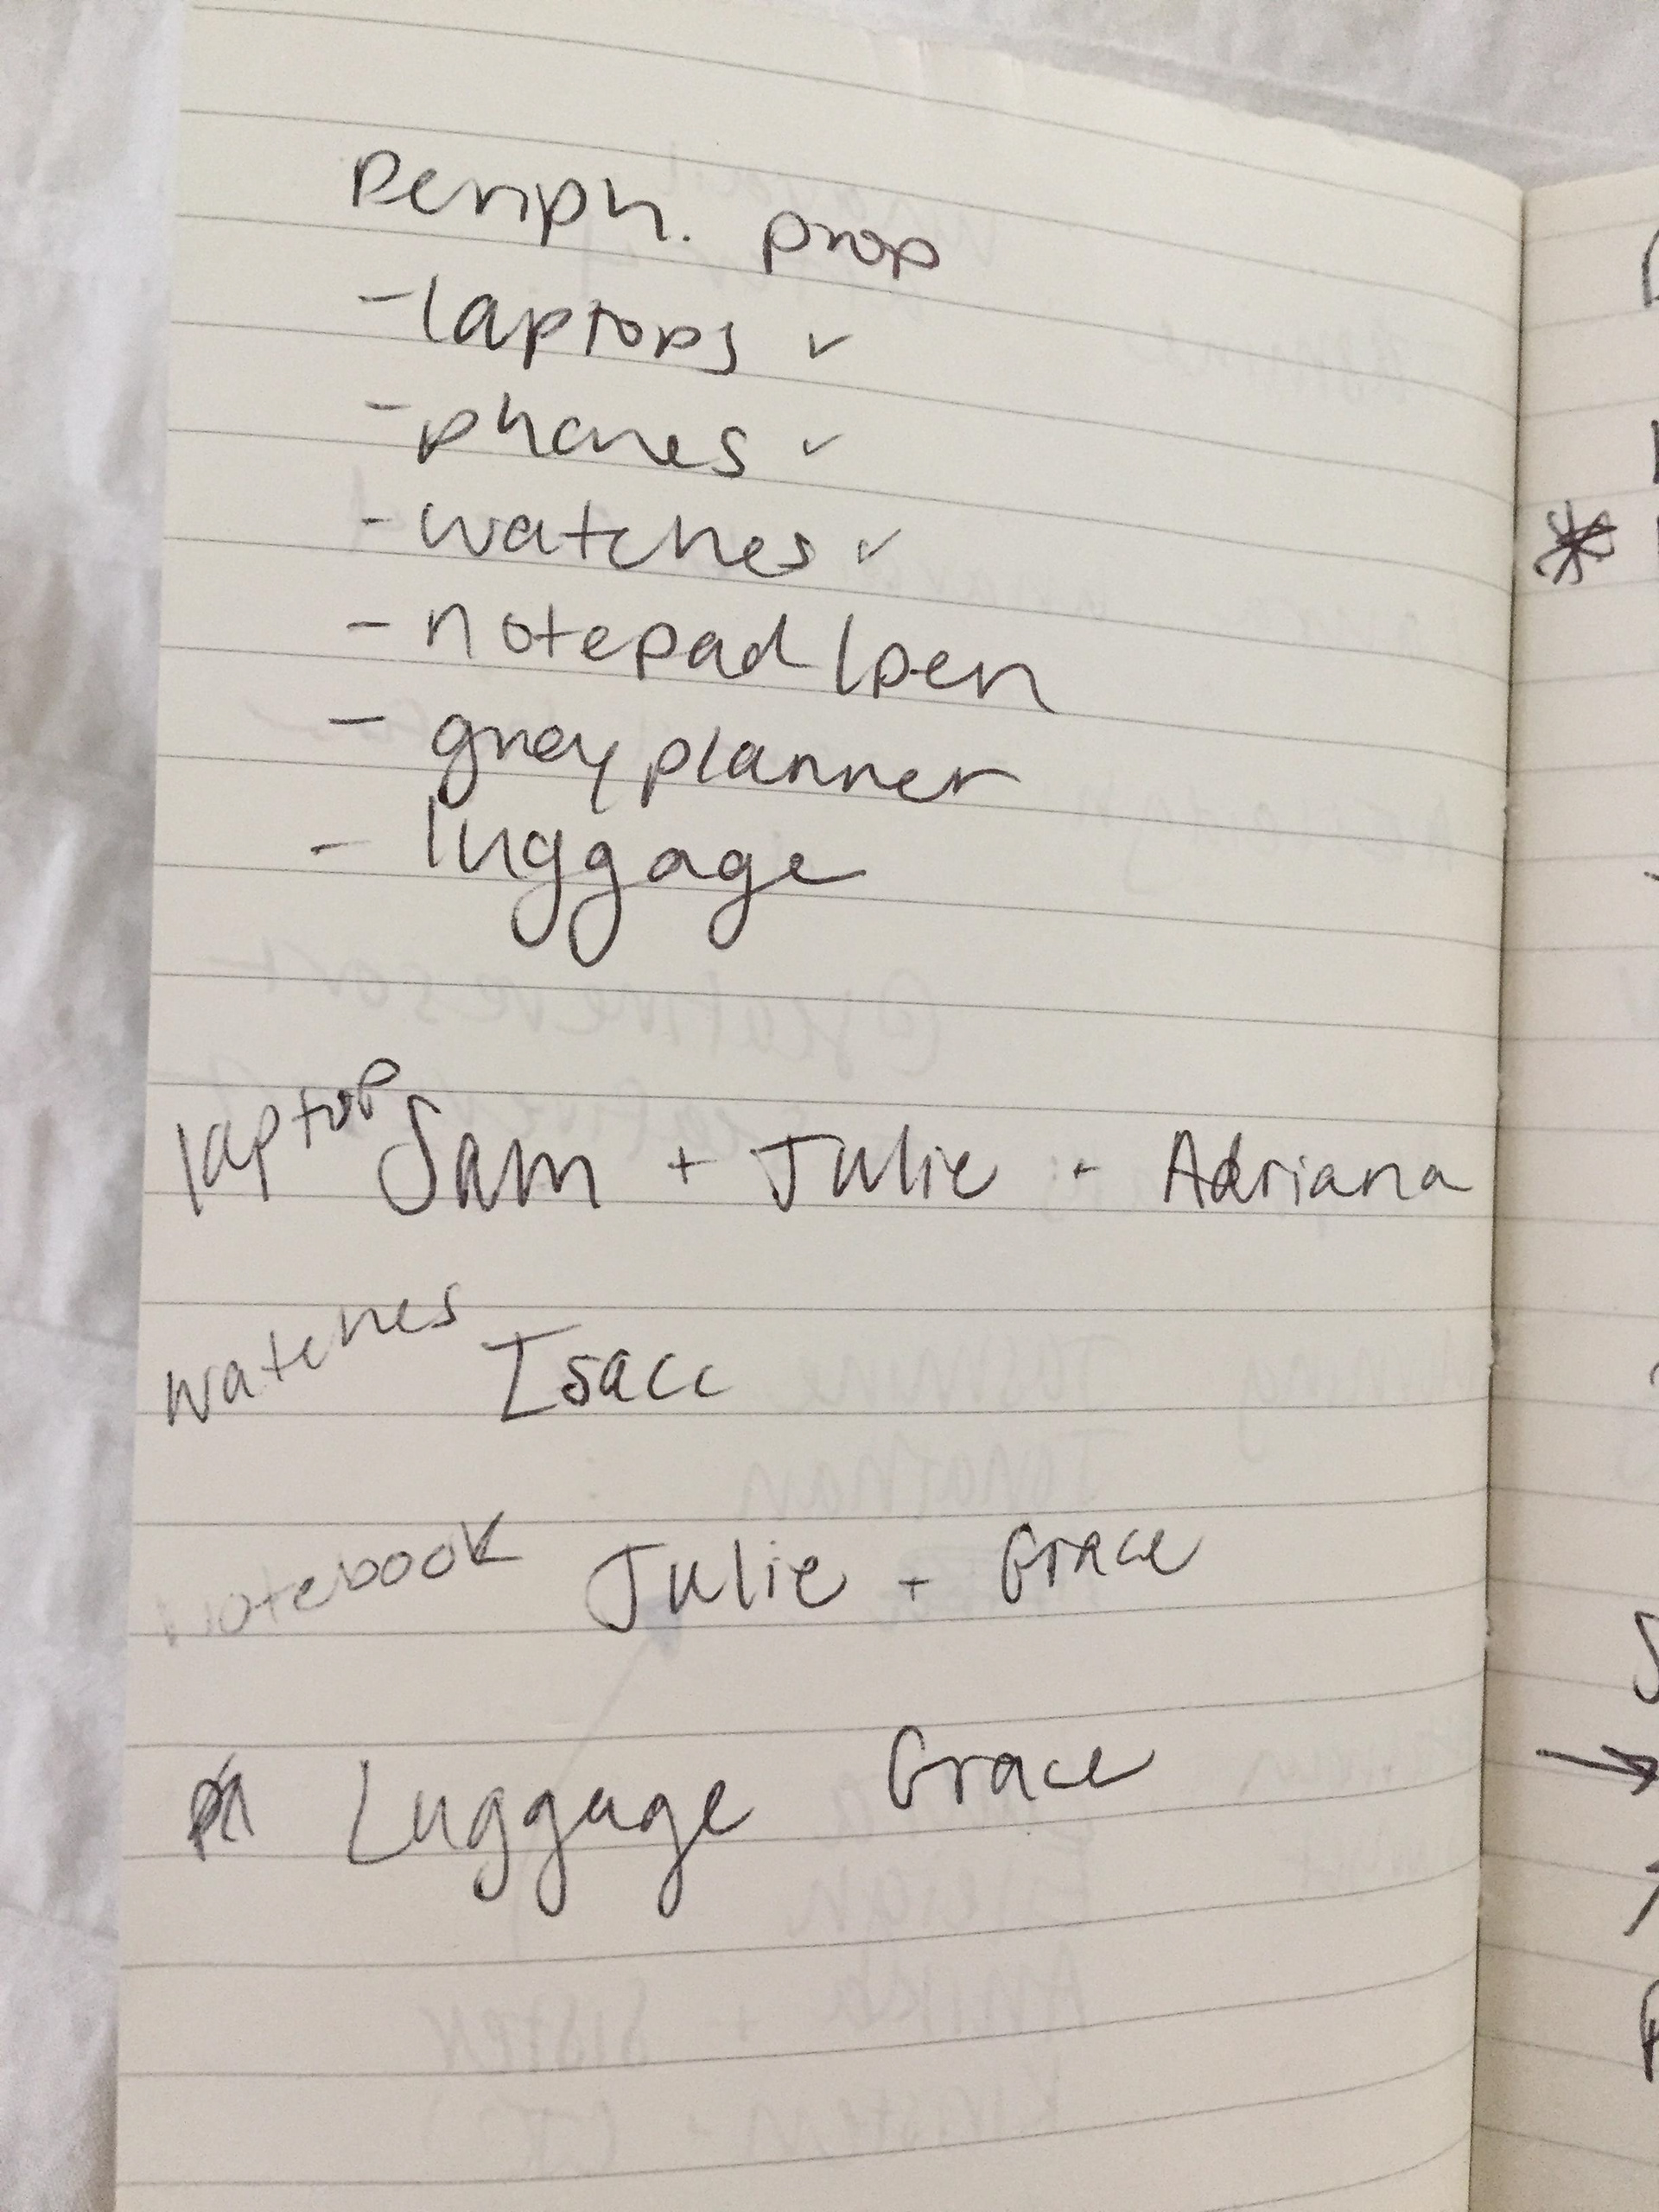 Periph. prop
- laptops ✓
- phones ✓
- watches ✓
- notepad/pen
- grey planner
- luggage
laptop Sam + Julie + Adriana
watches Isacc
notebook Julie + Grace
Luggage Grace